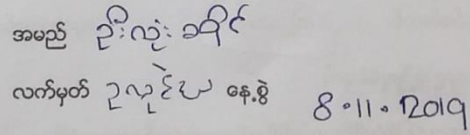 အမည် ဦးလုံးခိုင်
လက်မှတ် နေ့စွဲ 8.11.2019